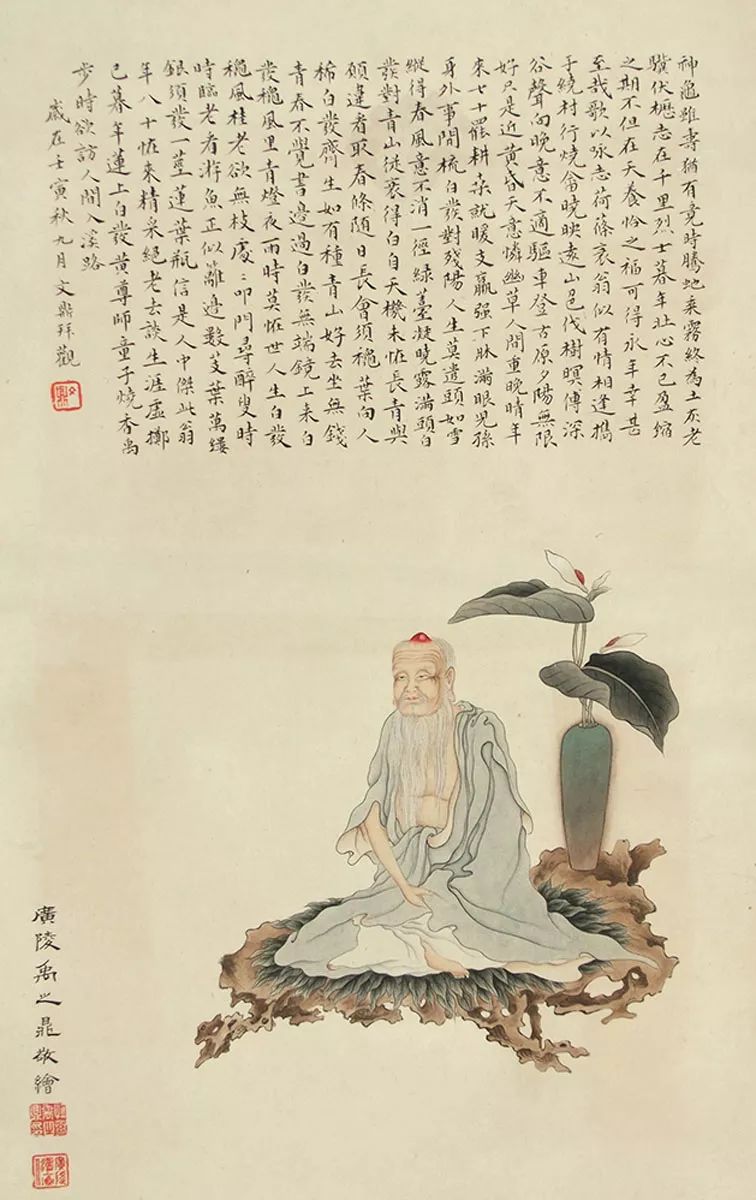 神龜雖壽猶有竟時騰蛇乘霧終為土灰老
驥伏櫪志在千里烈士暮年壯心不已盈縮
之期不但在天養怡之福可得永年幸甚
至哉歌以咏志荷蓧衰翁似有情相逢攜
手繞村行燒畬曉映遠山色伐樹暝傳深
谷聲向晚意不適驅車登古原夕陽無限
好只是近黃昏天意憐幽草人間重晚晴年
來七十罷耕桒就暖支羸强下牀滿眼兒孫
身外事閒梳白發對殘陽人生莫遣頭如雪
縱得春風意不消一徑綠薹凝曉露滿頭白
發對青山徒衰得白自天機未恠長青與
願違者取春條随日長會須穐葉向人
稀白發齊生如有種青山好去坐無錢
青春不覺書邊過白發無端鏡上来白
發穐風里青燈夜雨時莫恠世人生白發
穐風桂老欲無枝處〻叩門尋醉叟時
時臨老看游魚正似蘺邊數芰葉萬縷
銀須發一莖蓮葉瓶信是人中傑此翁
年八十恠来精采絕老去談生涯虛擲
已暮年蓮上白發黃尊師童子燒香禹
步時欲訪人間入溪路
歲在壬寅秋九月文鼎拜觀
廣陵禹之鼎敬繪